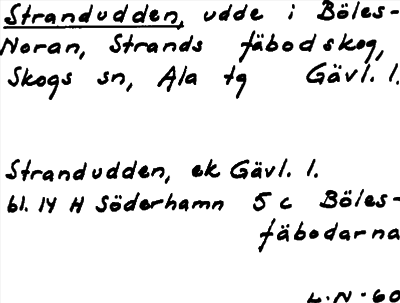 Strandudden, udde i Böles-
Noran, Strands fäbodskog,
Skogs sn, Ala tg Gävl. l.
Strandudden, ek Gävl. l.
bl. 14 H Söderhamn 5 c Böles-
fäbodarna
L.N.60